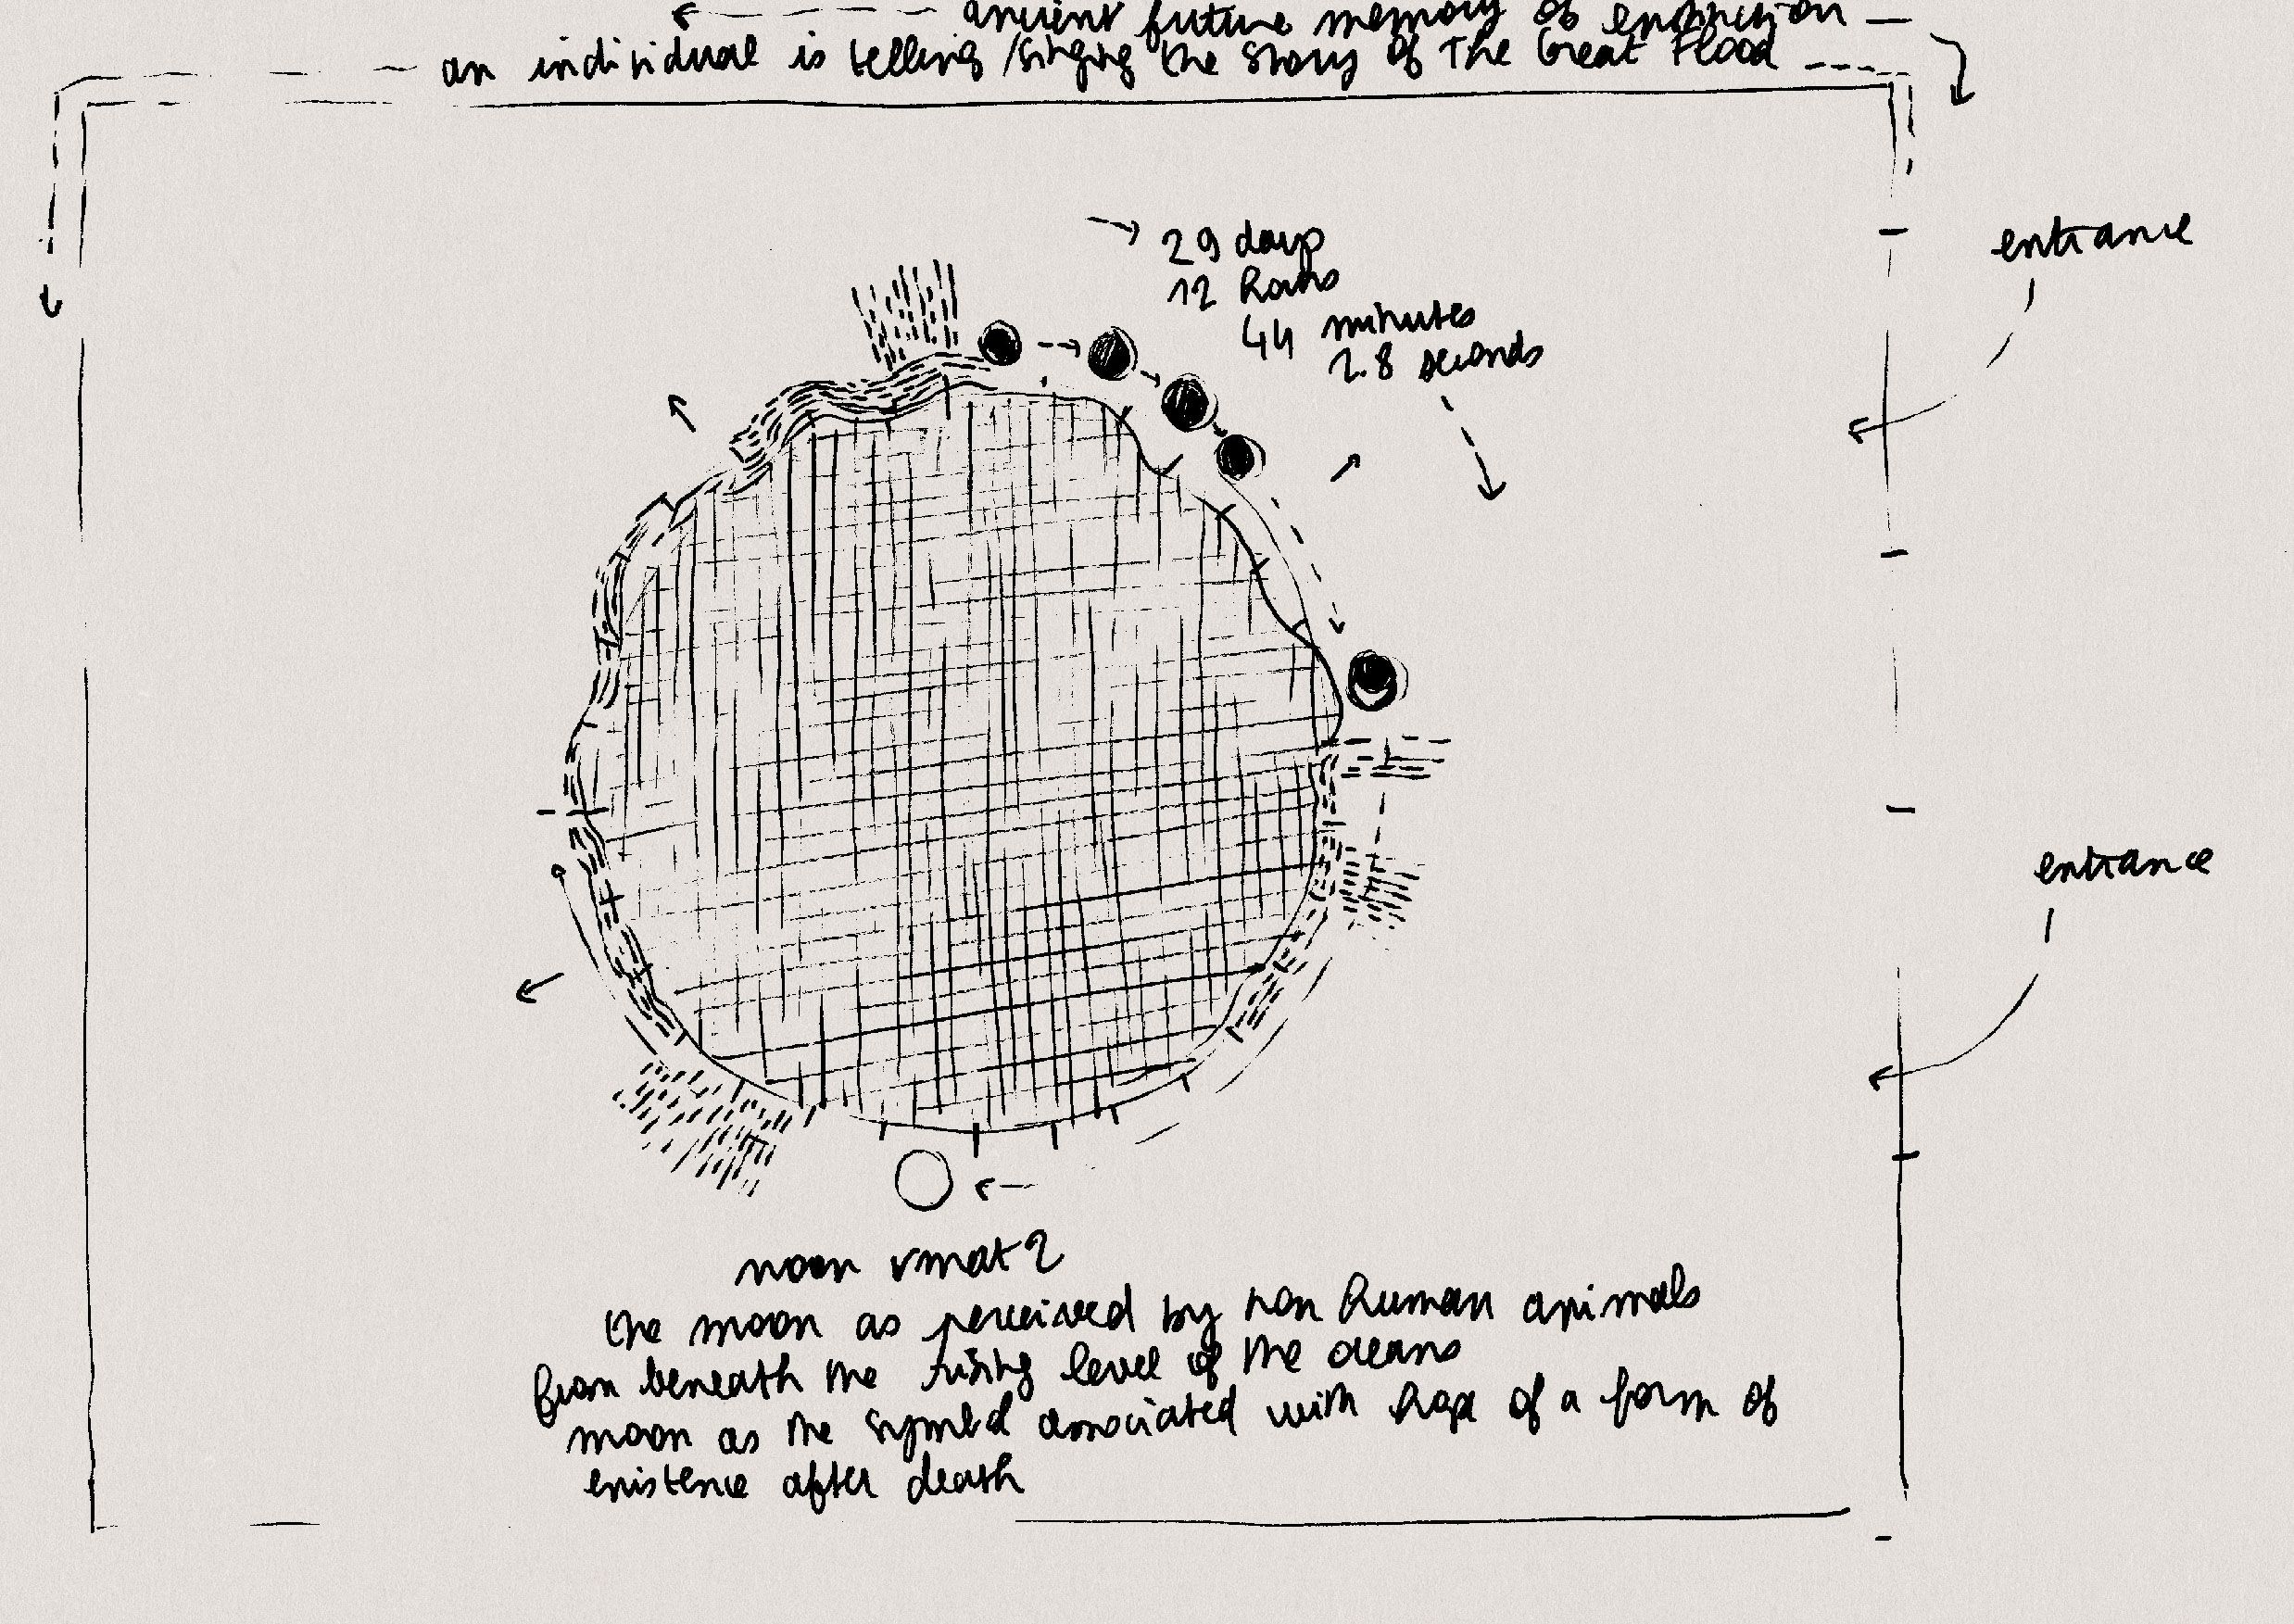 ancient future memory of extinction
an individual is telling/singing the story of The Great Flood
29 days
12 hours
44 minutes
2.8 seconds
entrance
entrance
moon
the moon as perceived by non human animals
from beneath the rising level of the oceans
moon as the symbol associated with hope of a form of
existence after death